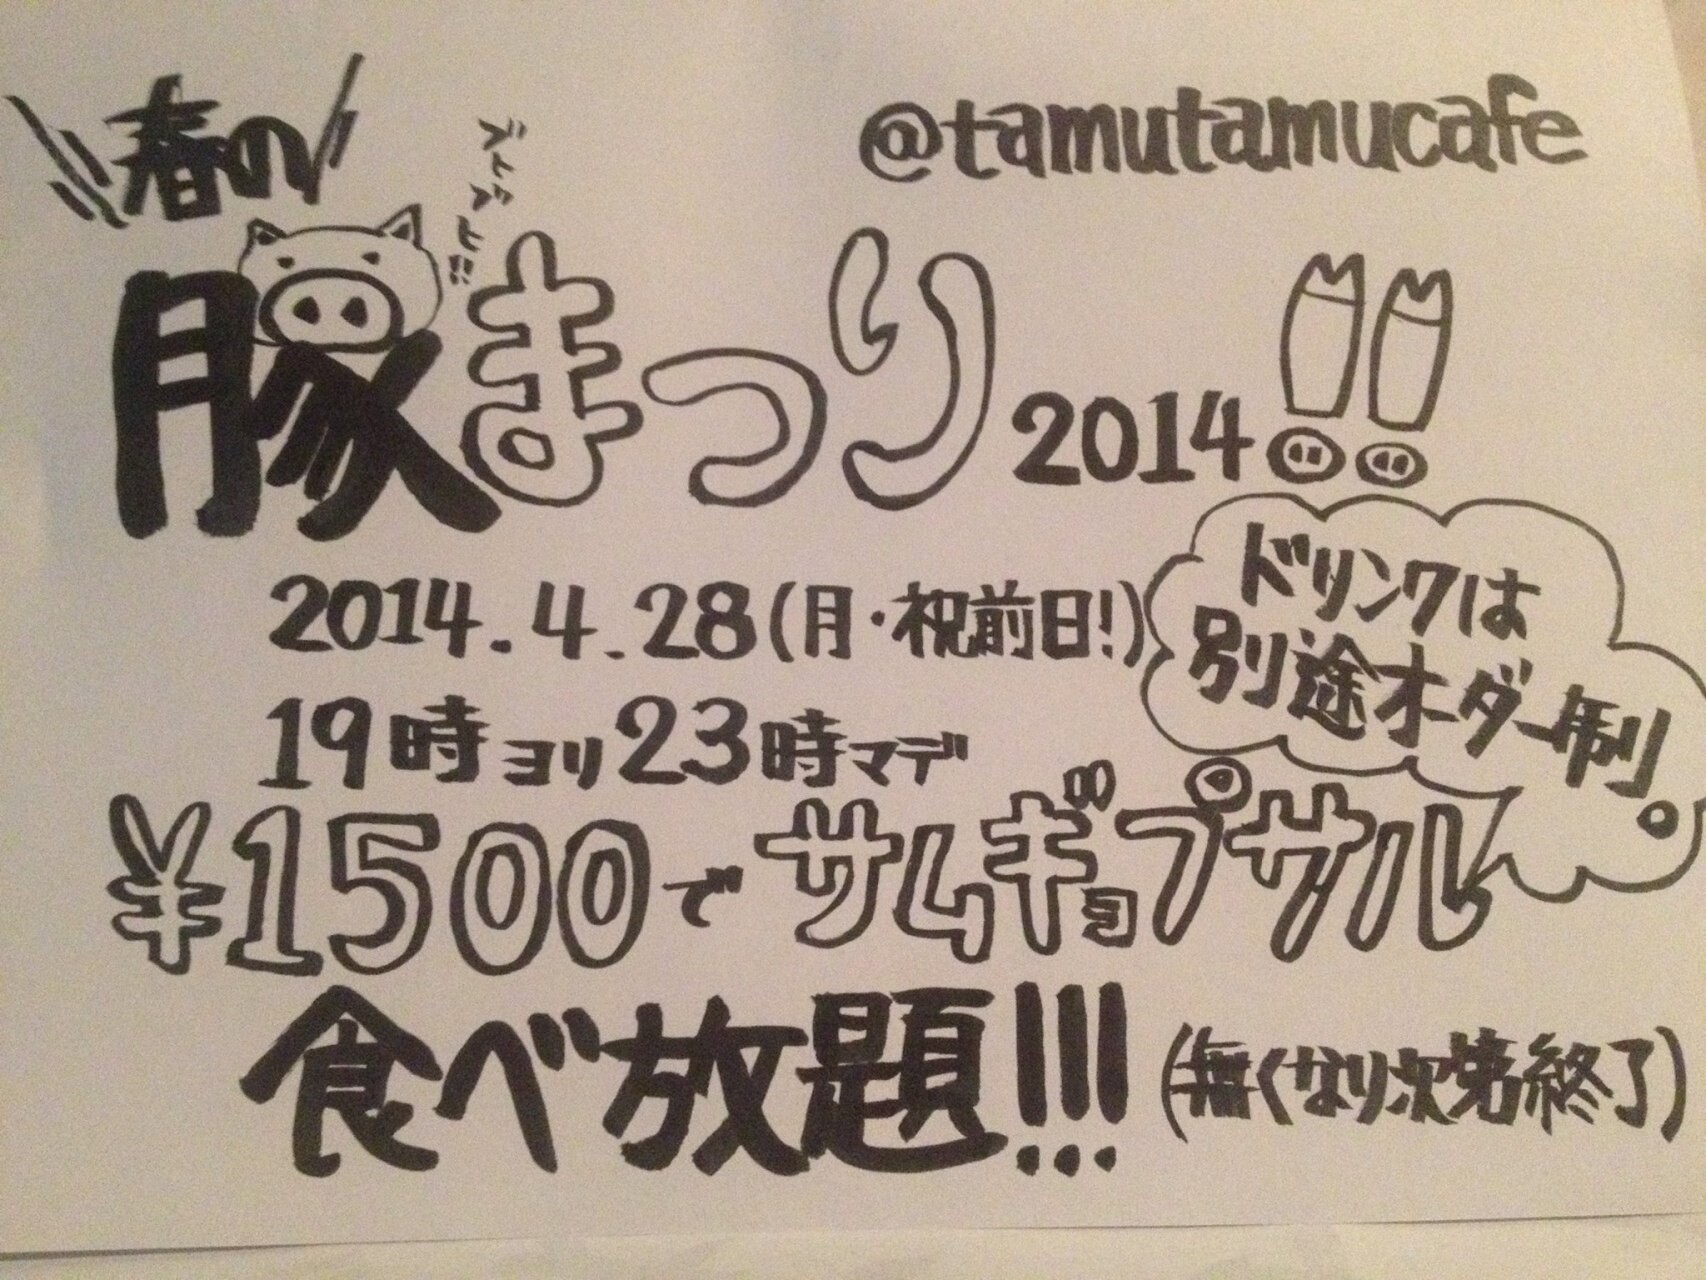 春の
@tamutamucafe
豚まつり2014!!
2014.4.28(月・祝前日!)
ドリンクは
別途オーダー制。
19時ヨリ23時マデ
¥1500でサムギョプサル
食べ放題!!!(無くなり次第終了)